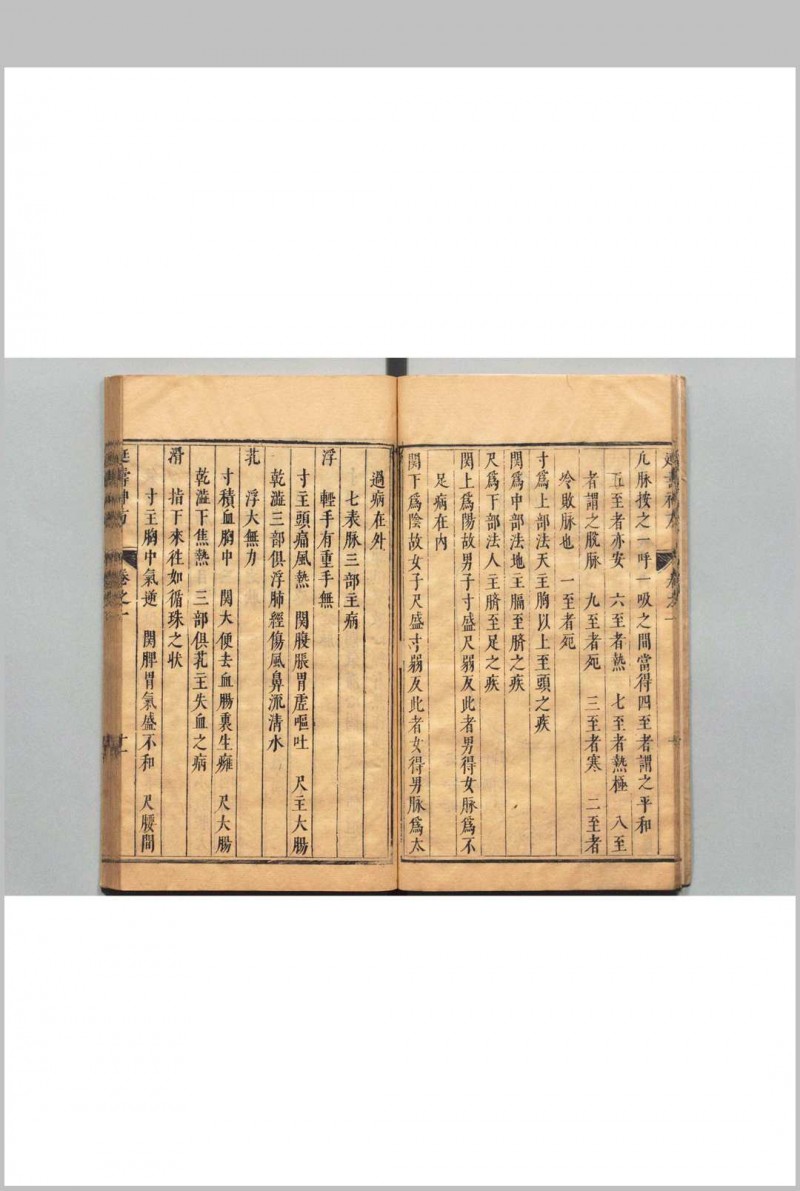 凡脉按之一呼一吸之間當得四至者謂之平和
五至者亦安 六至者熱 七至者熱極 八至
者謂之脫脉 九至者死 三至者寒 二至者
冷敗脉也 一至者死
寸爲上部法天主胸以上至頭之疾
関爲中部法地主膈至臍之疾
尺爲下部法人主臍至足之疾
関上爲陽故男子寸盛尺弱反此者男得女脉爲不
足病在内
関下爲陰故女子尺盛寸弱反此者女得男脉爲太
過病在外
七表脉三部主病
浮 輕手有重手無
寸主頭痛風熱 関腹脹胃虚嘔吐 尺主大腸
乾澁三部俱浮肺經傷風鼻流清水
芤 浮大無力
寸積血胸中 関大便去血腸裏生癰 尺大腸
乾澁下焦熱 三部俱芤主失血之病
滑 指下來往如循珠之狀
寸主胸中氣逆 関脾胃氣盛不和 尺腰間
延壽神方 卷之一 十一